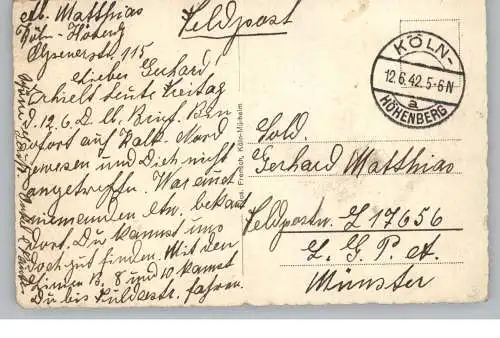 Matthias
Köln-Höhenbg
115
Feldpost
Lieber Gerhard!
Erhielt heute Freitag
d. 12.6. D. lb. Brief. Bin
sofort auf Kalk-Nord
gewesen und Dich nicht
angetroffen. War auch
niemanden etw. bekannt
dort. Du kannst uns
doch gut finden. Mit den
Linien B, 8 und 10 kannst
Du bis Fuldaerstr. fahren.
KÖLN-
12.6.42.5-6N
a
HÖHENBERG
Sold.
Gerhard Matthias
Feldpostnr. L 17656
L. G. P. A.
Münster
Frensch, Köln-Mülheim